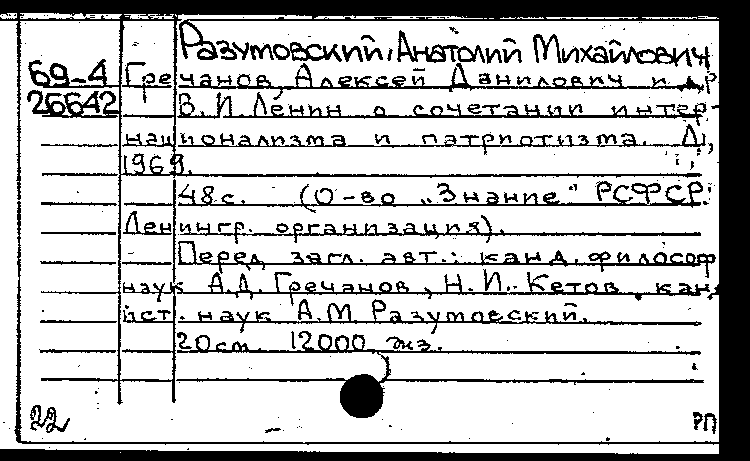 Разумовский, Анатолий Михайлович
69-4 Гречанов, Алексей Данилович и др
26642 В.И. Ленин о сочетании интер-
национализма и патриотизма. Л,
1969.
48с. (О-во „Знание" РСФСР.
Ленингр. организация).
Перед загл. авт.: канд. философ
наук А.Д. Гречанов, Н.И. Кетов, канд
ист. наук А.М. Разумовский.
20см. 12000 экз.
22 РП